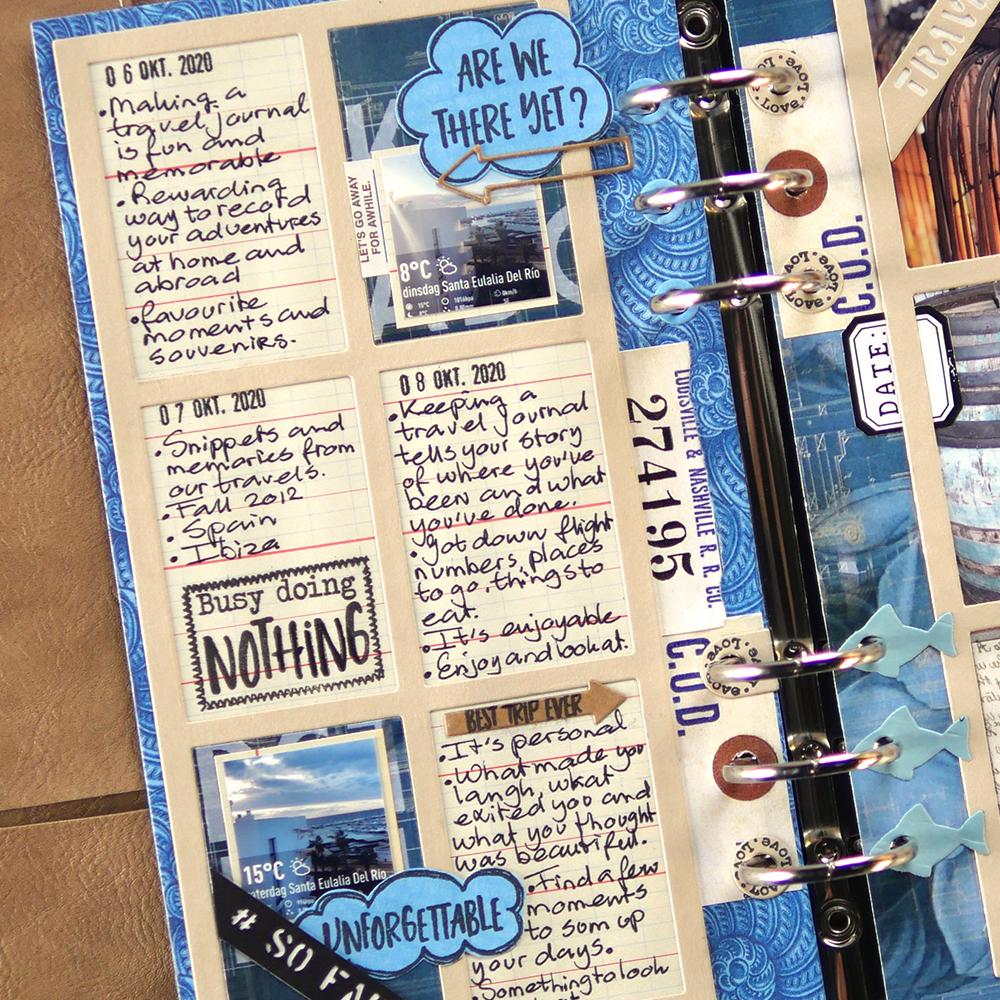 06 OKT. 2020
• Making a
travel journal
is fun and
memorable
• Rewarding
way to record
your adventures
at home and
abroad
• favourite
moments and
souvenirs.
ARE WE
THERE YET?
LET'S GO AWAY
FOR AWHILE.
8°C
dinsdag Santa Eulalia Del Río
15°C
1016hpa
8km/h
07 OKT. 2020
• Snippets and
memories from
our travels.
• Fall 2012
• Spain
• Ibiza
Busy doing
NOTHING
08 OKT. 2020
• Keeping a
travel journal
tells your story
of where you've
been and what
you've done.
• Jot down flight
numbers, places
to go, things to
eat.
• It's enjoyable
• Enjoy and look at.
15°C
Santa Eulalia Del Río
UNFORGETTABLE
# SO
BEST TRIP EVER
• It's personal
• What made you
laugh, what
exited you and
what you thought
was beautiful.
• Find a few
moments
to som up
your days.
Something to look
LOUISVILLE & NASHVILLE R. R. CO.
274195
C.O.D.
Love
Love
Love
C.O.D.
Love
Love
DATE:
TRAV